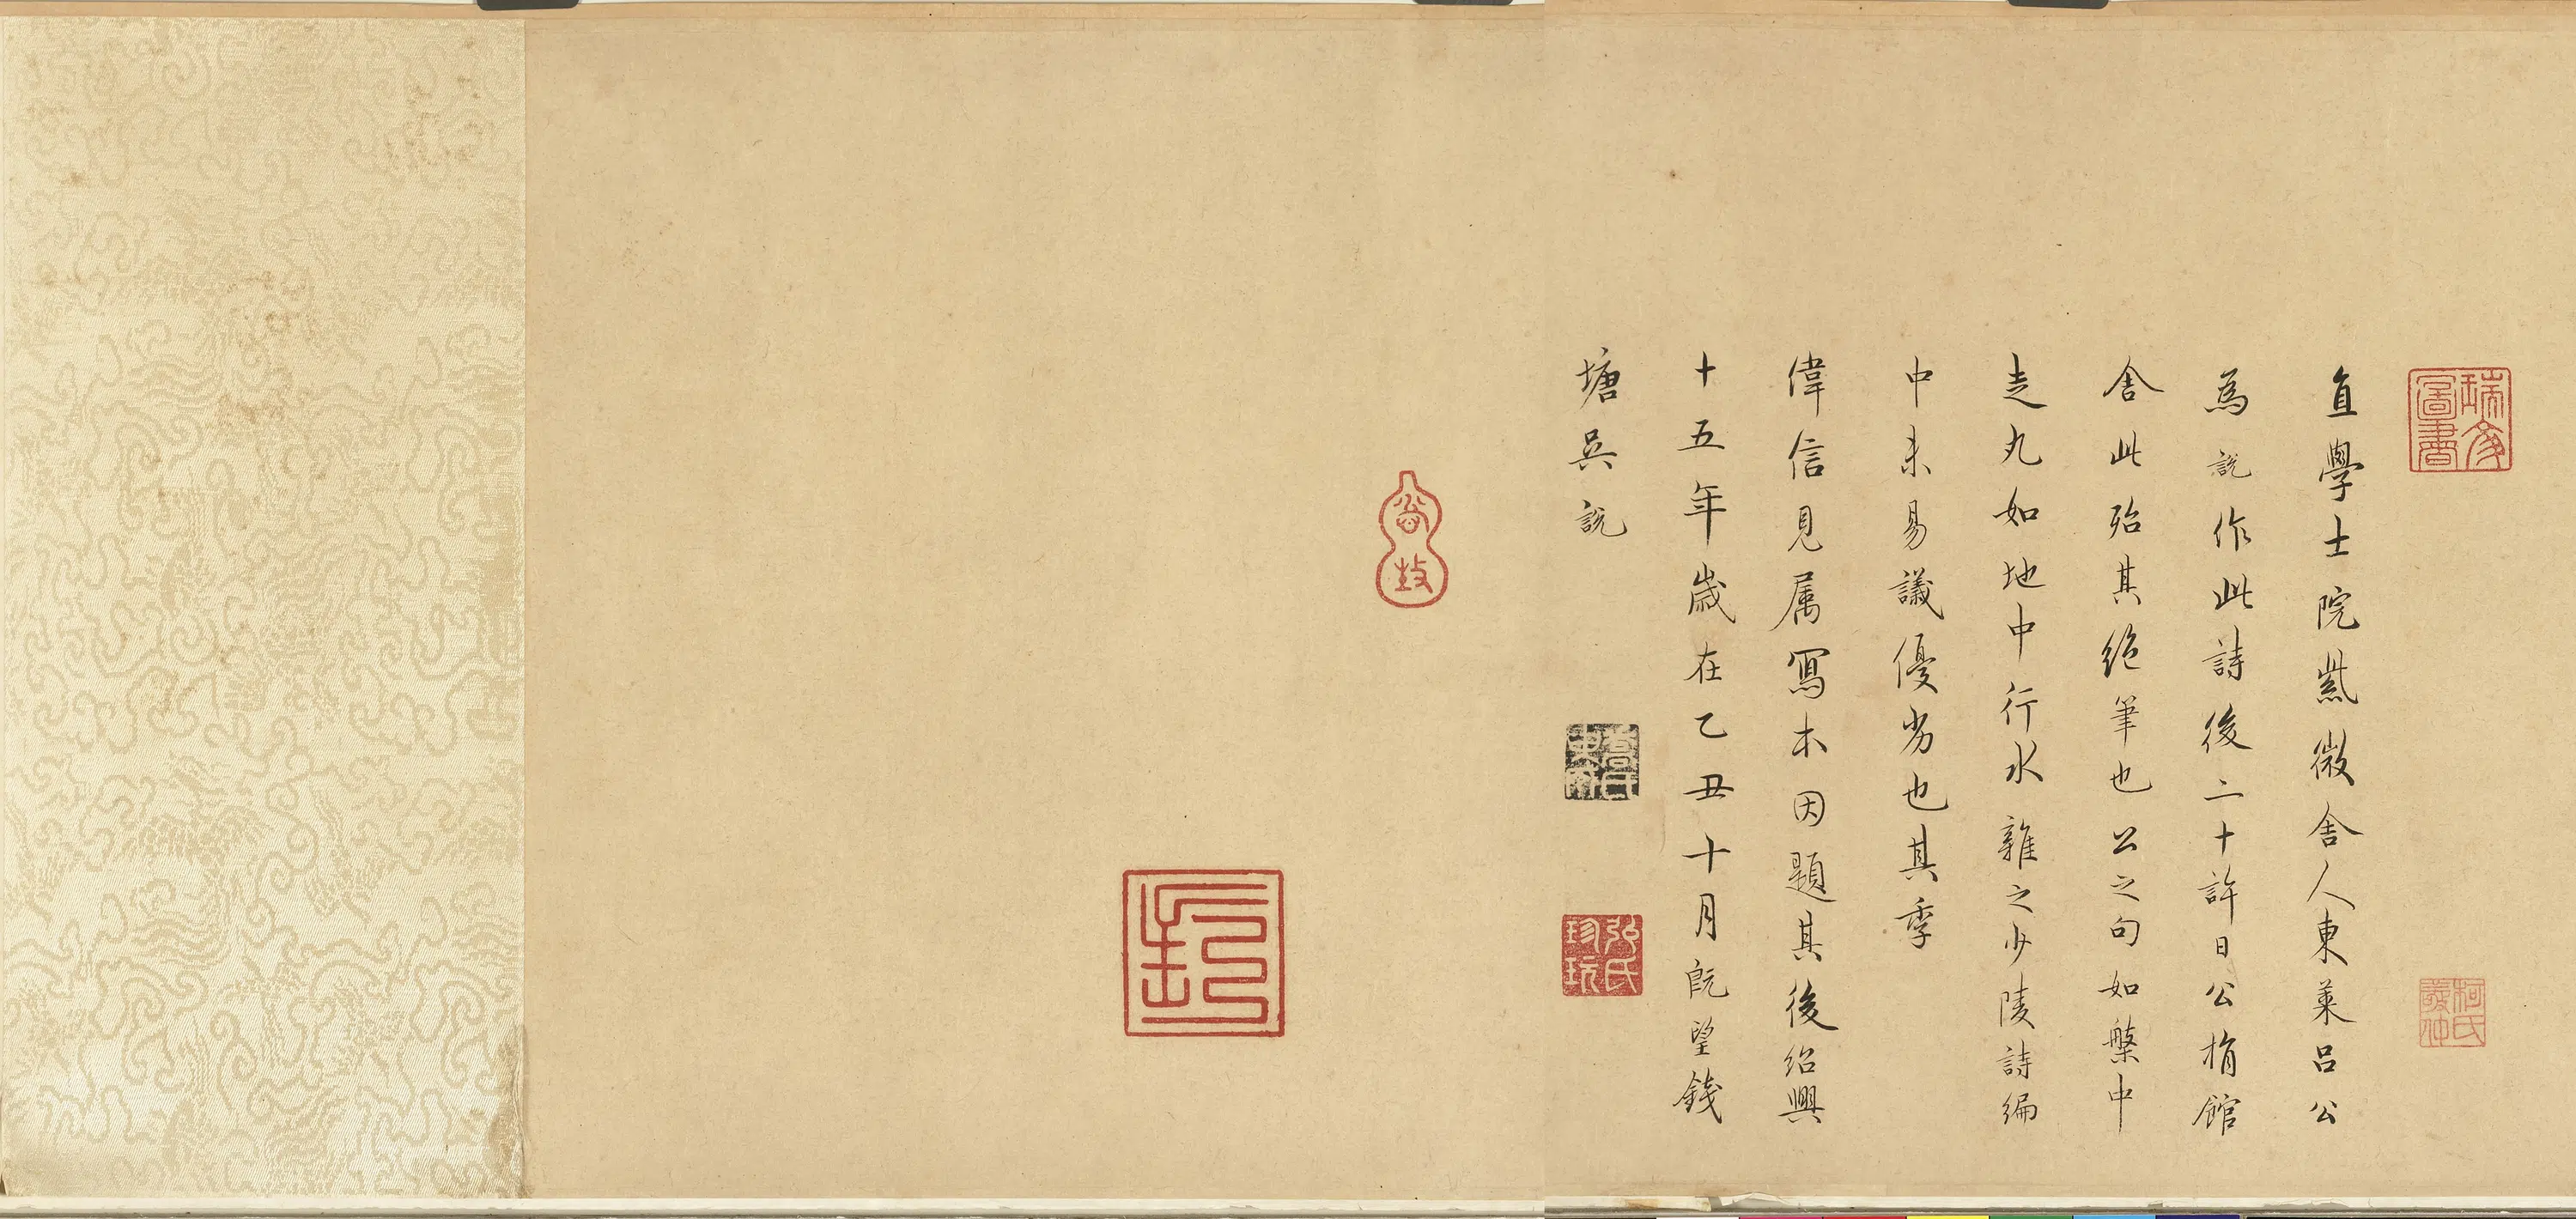 直學士院紫微舍人東萊呂公
為說作此詩後二十許日公捐館
舍此殆其絕筆也公之句如槃中
走丸如地中行水雜之少陵詩編
中未易議優劣也其季
偉信見屬寫本因題其後紹興
十五年歲在乙丑十月旣望錢
塘吳說
弘氏珍玩
柯氏敬仲